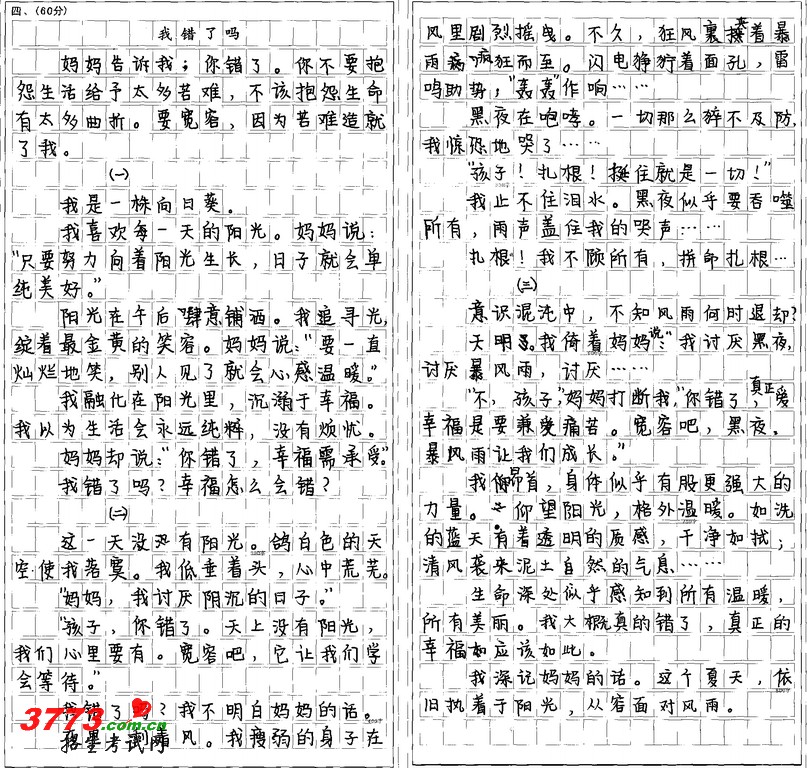 四、(60分)
我错了吗
妈妈告诉我；你错了。你不要抱
怨生活给予太多苦难，不该抱怨生命
有太多曲折。要宽容，因为苦难造就
了我。
(一)
我是一株向日葵。
我喜欢每一天的阳光。妈妈说：
"只要努力向着阳光生长，日子就会单
纯美好。"
阳光在午后肆意铺洒。我追寻光，
绽着最金黄的笑容。妈妈说："要一直
灿烂地笑，别人见了就会心感温暖。"
我融化在阳光里，沉溺于幸福。
我以为生活会永远纯粹，没有烦忧。
妈妈却说："你错了，幸福需承受。"
我错了吗？幸福怎么会错？
(二)
这一天没有阳光。鸽白色的天
空使我落寞。我低垂着头，心中荒芜。
"妈妈，我讨厌阴沉的日子。"
"孩子，你错了。天上没有阳光，
我们心里要有。宽容吧，它让我们学
会等待。"
我错了吗？我不明白妈妈的话。
3773.com.cn
招生考试网
风。我瘦弱的身子在
风里剧烈摇曳。不久，狂风裹夹着暴
雨疯狂而至。闪电狰狞着面孔，雷
鸣助势，"轰轰"作响……
黑夜在咆哮。一切那么猝不及防，
我惊恐地哭了……
"孩子！扎根！挺住就是一切！"
我止不住泪水。黑夜似乎要吞噬
所有，雨声盖住我的哭声……
扎根！我不顾所有，拼命扎根…
(三)
意识混沌中，不知风雨何时退却？
天明了。我倚着妈妈说："我讨厌黑夜，
讨厌暴风雨，讨厌……
"不，孩子，"妈妈打断我，"你错了，真正
幸福是要兼受痛苦。宽容吧，黑夜、
暴风雨让我们成长。"
我昂首，身体似乎有股更强大的
力量。仰望阳光，格外温暖。如洗
的蓝天有着透明的质感，干净如拭；
清风袭来泥土自然的气息……
生命深处似乎感知到所有温暖，
所有美丽。我大概真的错了，真正的
幸福如应该如此。
我深记妈妈的话。这个夏天，依
旧执着于阳光，从容面对风雨。